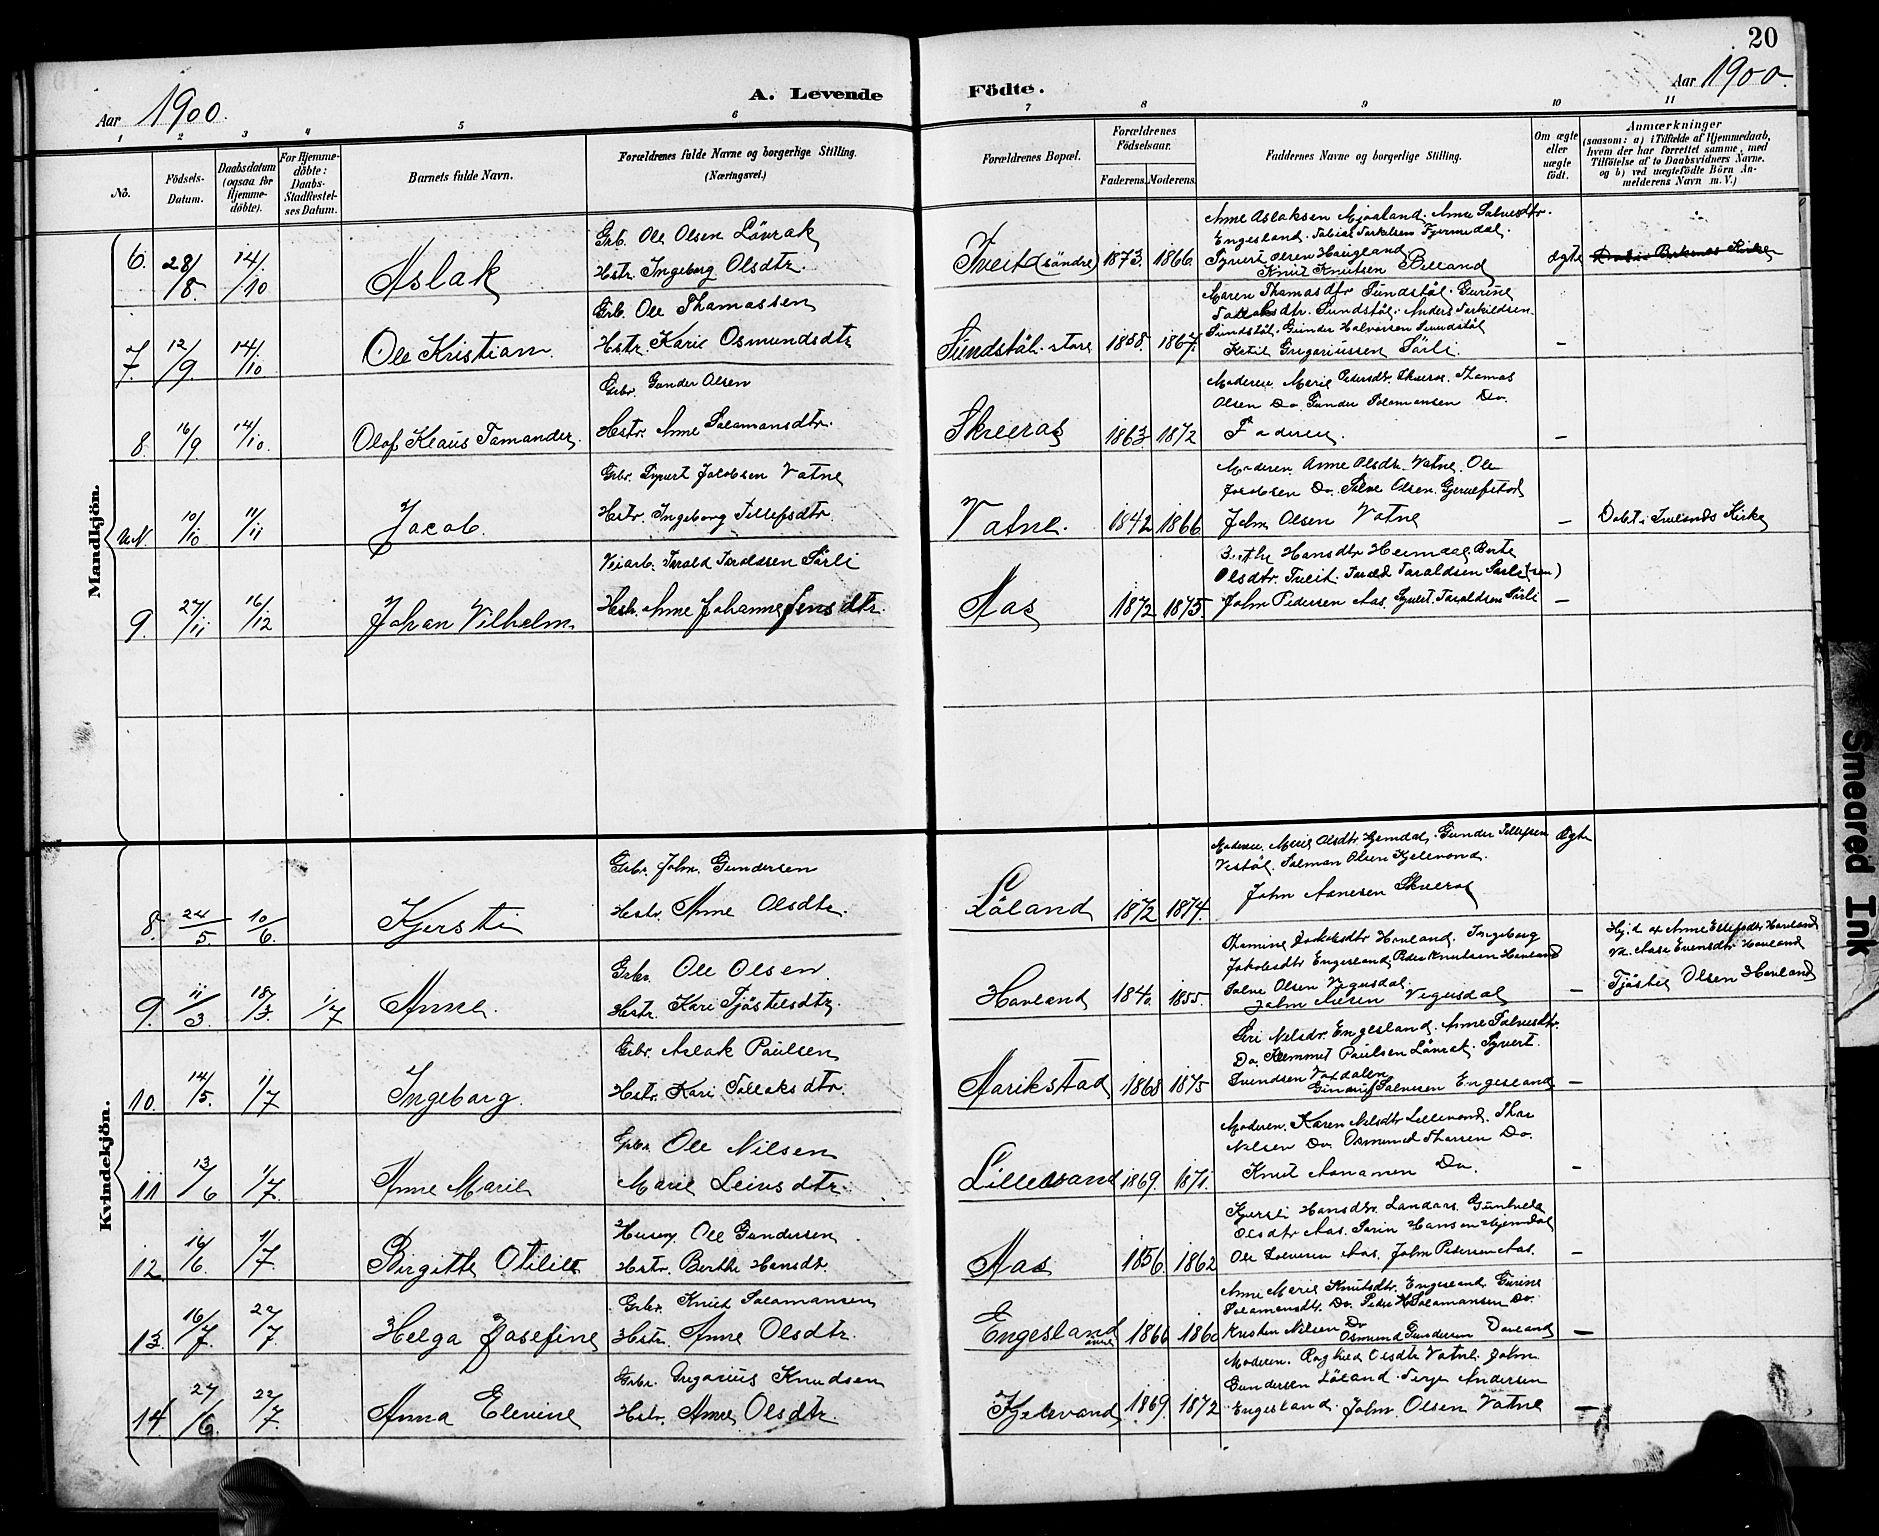 20
Aar 1900.
A. Levende Födte.
Aar 1900.
1 2 3 4 5 6 7 8 9 10 11
No.
Födsels-Datum.
Daabsdatum (ogsaa for Hjemme-döbte).
For Hjemme-döbte: Daabs-Stadfæstel-ses Datum.
Barnets fulde Navn.
Forældrenes fulde Navne og borgerlige Stilling. (Næringsvei.)
Forældrenes Bopæl.
Forældrenes Födselsaar.
Faderens. Moderens.
Faddernes Navne og borgerlige Stilling.
Om ægte eller uægte födt.
Anmærkninger
(saasom: a) i Tilfælde af Hjemmedaab,
hvem der har forrettet samme, med
Tilföielse af to Daabsvidners Navne.
og b) ved uægtefödte Börn An-
melderens Navn m. V.)
Mandkjön.
6. 28/8 14/10 Aslak
Grb. Ole Olsen Lövrak
Hstr. Ingeborg Olsdtr.
Tveit (söndre) 1873. 1866.
Anne Aslaksen Mjaaland. Anne Salvesdtr.
Engesland. Tobias Terkelsen
Syvert Olsen Haugland
Knut Knutsen Birkeland
ægte
7. 12/9. 14/10 Ole Kristian.
Grb. Ole Thomassen
Hstr. Karie Osmundsdtr
Sundstöl. store 1858. 1867.
Maren Thomasdtr Sundstöl. Gurine
Sundstöl. Anders Terkildsen
Sundstöl. Gunder Halvorsen Sundstöl
Ketil Gregoriussen Sörli.
–
8. 16/9 14/10. Olaf Klaus Tomander.
Grbr. Gunder Olsen
Hstr. Anne Salamonsdtr.
Skreros 1863 1872
Moderen. Marie Pedersdtr. Skreros. Thomas
Olsen Do. Gunder Salamonsen Do.
Faderen.
–
u.N. 10/10 11/11 Jacob.
Grbr. Syvert Jacobsen Vatne
Hstr. Ingeborg Tellefsdtr.
Vatne. 1842 1866
Moderen. Anne Olsdtr. Vatne. Ole
Jacobsen Do. Salve Olsen.
John Olsen Vatne
–
Döbt i Ivelands Kirke
9. 27/11 16/12 Johan Vilhelm
Veiarb. Tarald Taraldsen Sörli
Hstr. Anne Johanne Jensdtr.
Aas 1872 1875.
Hansdtr Heimdal Berte
Olsdtr. Tveit. Tarald Taraldsen Sörli (sen)
John Pedersen Aas. Syvert Taraldsen Sörli
–
Kvindekjön.
8. 24/5. 10/6. Kjersti
Grbr. John Gundersen
Hstr. Anne Olsdtr.
Löland 1872 1874.
Moderen. Marie Olsdtr Hjemdal. Gunder Tellefsen
Vestöl. Salman Olsen Kjelevand.
John Aanesen Skreros
Ægte
9. 11/3. 18/3. 1/7 Anne.
Grbr. Ole Olsen.
Hstr. Kari Tjöstelsdtr.
Hovland 1840. 1855.
Thomine Jakobsdtr Hovland. Ingeborg
Jakobsdtr Engesland, Peder Knutsen Hovland
Salve Olsen Vegusdal.
John Vegusdal
–
Hj.d. af Anne Ellefsdtr Hovland
Vd. Aase Evensdtr Hovland
Tjöstel Olsen Hovland
10. 14/5. 1/7 Ingeborg.
Grbr. Aslak Paulsen
Hstr. Kari Tellaksdtr.
Marikstad 1868 1875
Siri Nilsdr. Engesland. Anne Salvesdtr.
Do. Klemmet Paulsen Lövrak. Syvert
Svendsen
Salvesen Engesland
–
11 13/6 1/7. Anne Marie
Grbr. Ole Nilsen
Marie Leivsdtr.
Lillevand 1869. 1871.
Moderen. Karen Nilsdtr Lillevand. Thor
Nilsen Do. Osmund Thorsen Do.
Knut Aanamsen Do.
–
12 16/6. 1/7. Birgitte Otilie
Husm. Ole Gundersen
Hstr. Berthe Hansdtr
Aas 1856. 1862
Kjersti Hansdtr. Landaas. Gunhild
Olsdtr Aas. Sörin Hansen Hjemdal
Ole Aas. John Pedersen Aas.
–
13. 16/7. 22/7. Helga Josefine
Grbr. Knud Salamonsen
Hstr. Anne Olsdtr.
Engesland 1866 1860
Anne Marie Knutsdtr. Engesland. Gurine
Salamonsdtr. Do. Peder K Salamonsen Do.
Kristen Nilsen Do
Osmund Gundersen Dovland
–
14. 27/6. 22/7. Anna Elevine
Grbr. Gregorius Knudsen
Hstr. Anne Olsdtr
Kjelevand 1869. 1872
Moderen. Ragnhild Olsdtr Vatne. John
Gundersen Löland. Terje Andersen
Engesland. John Olsen Vatne
–
Smeared Ink